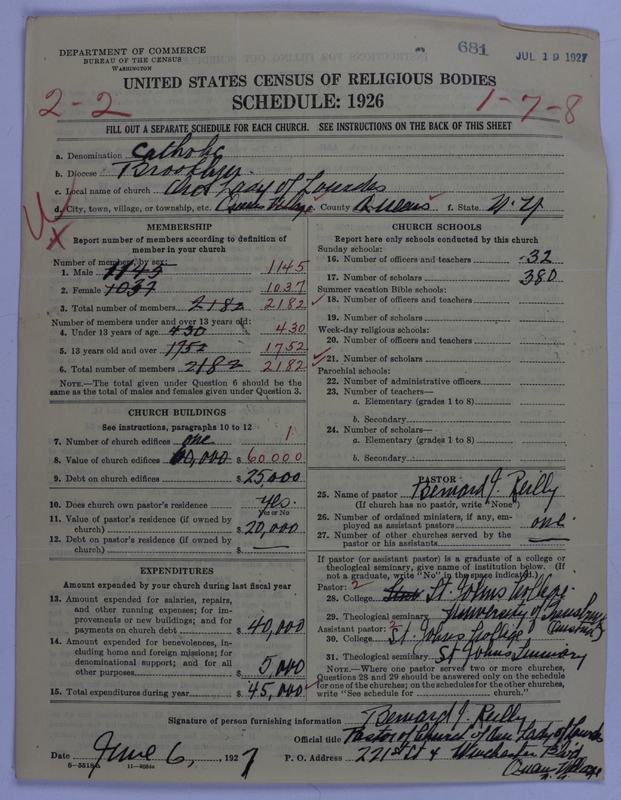 681
JUL 19 1927
DEPARTMENT OF COMMERCE
BUREAU OF THE CENSUS
WASHINGTON
UNITED STATES CENSUS OF RELIGIOUS BODIES
SCHEDULE: 1926
2-2
1-7-8
FILL OUT A SEPARATE SCHEDULE FOR EACH CHURCH. SEE INSTRUCTIONS ON THE BACK OF THIS SHEET
a. Denomination Catholic
b. Diocese Brooklyn
c. Local name of church Our Lady of Lourdes
d. City, town, village, or township, etc. Queens Village e. County Queens f. State N.Y.
MEMBERSHIP
Report number of members according to definition of
member in your church
Number of members, by sex:
1. Male 1145 1145
2. Female 1037 1037
3. Total number of members 2182 2182
Number of members under and over 13 years old:
4. Under 13 years of age 430 430
5. 13 years old and over 1752 1752
6. Total number of members 2182 2182
NOTE.—The total given under Question 6 should be the
same as the total of males and females given under Question 3.
CHURCH BUILDINGS
See instructions, paragraphs 10 to 12
7. Number of church edifices one 1
8. Value of church edifices 60,000 $ 60000
9. Debt on church edifices $ 25,000
10. Does church own pastor's residence yes.
Yes or No
11. Value of pastor's residence (if owned by
church) $ 20,000
12. Debt on pastor's residence (if owned by
church) $ —
EXPENDITURES
Amount expended by your church during last fiscal year
13. Amount expended for salaries, repairs,
and other running expenses; for im-
provements or new buildings; and for
payments on church debt $ 40,000
14. Amount expended for benevolences, in-
cluding home and foreign missions; for
denominational support; and for all
other purposes $ 5,000
15. Total expenditures during year $ 45,000
CHURCH SCHOOLS
Report here only schools conducted by this church
Sunday schools:
16. Number of officers and teachers 32
17. Number of scholars 380
Summer vacation Bible schools:
18. Number of officers and teachers
19. Number of scholars
Week-day religious schools:
20. Number of officers and teachers
21. Number of scholars
Parochial schools:
22. Number of administrative officers
23. Number of teachers—
a. Elementary (grades 1 to 8)
b. Secondary
24. Number of scholars—
a. Elementary (grades 1 to 8)
b. Secondary
PASTOR
25. Name of pastor Bernard J. Reilly
(If church has no pastor, write "None")
26. Number of ordained ministers, if any, em-
ployed as assistant pastors one
27. Number of other churches served by the
pastor or his assistants —
If pastor (or assistant pastor) is a graduate of a college or
theological seminary, give name of institution below. (If
not a graduate, write "No" in the space indicated.)
Pastor: 2
28. College St. Johns College
29. Theological seminary University of Innsbruck (Austria)
Assistant pastor: 2
30. College St. Johns College
31. Theological seminary St Johns Seminary
NOTE.—Where one pastor served two or more churches,
Questions 28 and 29 should be answered only on the schedule
for one of the churches; on the schedules for the other churches,
write "See schedule for church."
Signature of person furnishing information Bernard J. Reilly
Official title Pastor of Church of Our Lady of Lourdes
Date June 6, 1927 P. O. Address 221st St & Winchester Blvd
Queens Village
N.Y.